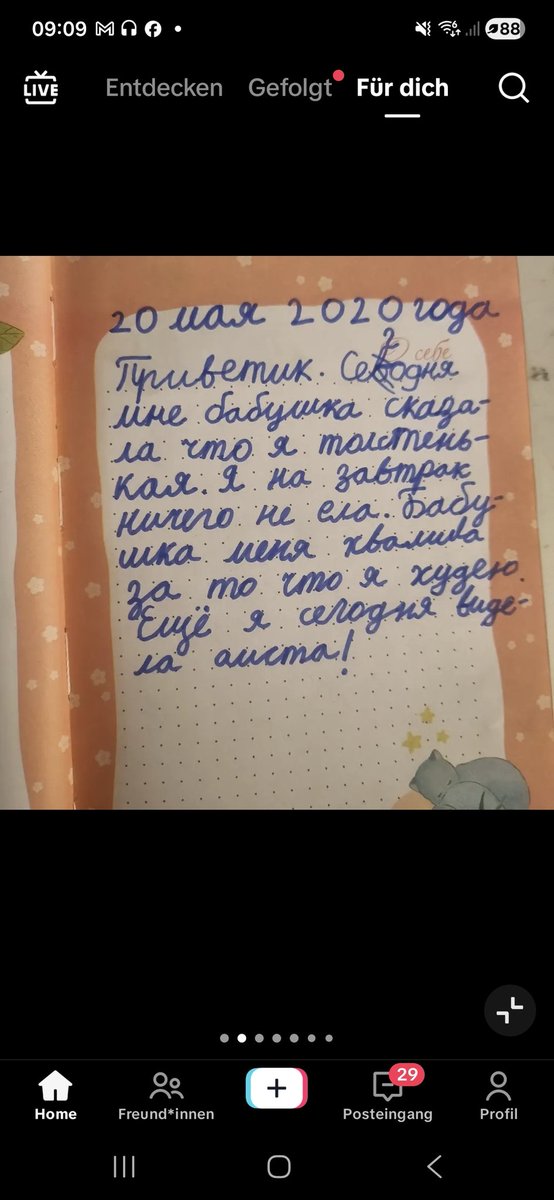 09:09
88
LIVE
Entdecken Gefolgt Für dich
20 мая 2020 года
О себе
Приветик. Сегодня
мне бабушка сказа-
ла что я толстень-
кая. Я на завтрак
ничего не ела. Бабу-
шка меня хвалила
за то что я худею.
Ещё я сегодня виде-
ла аиста!
29
Home Freund*innen Posteingang Profil